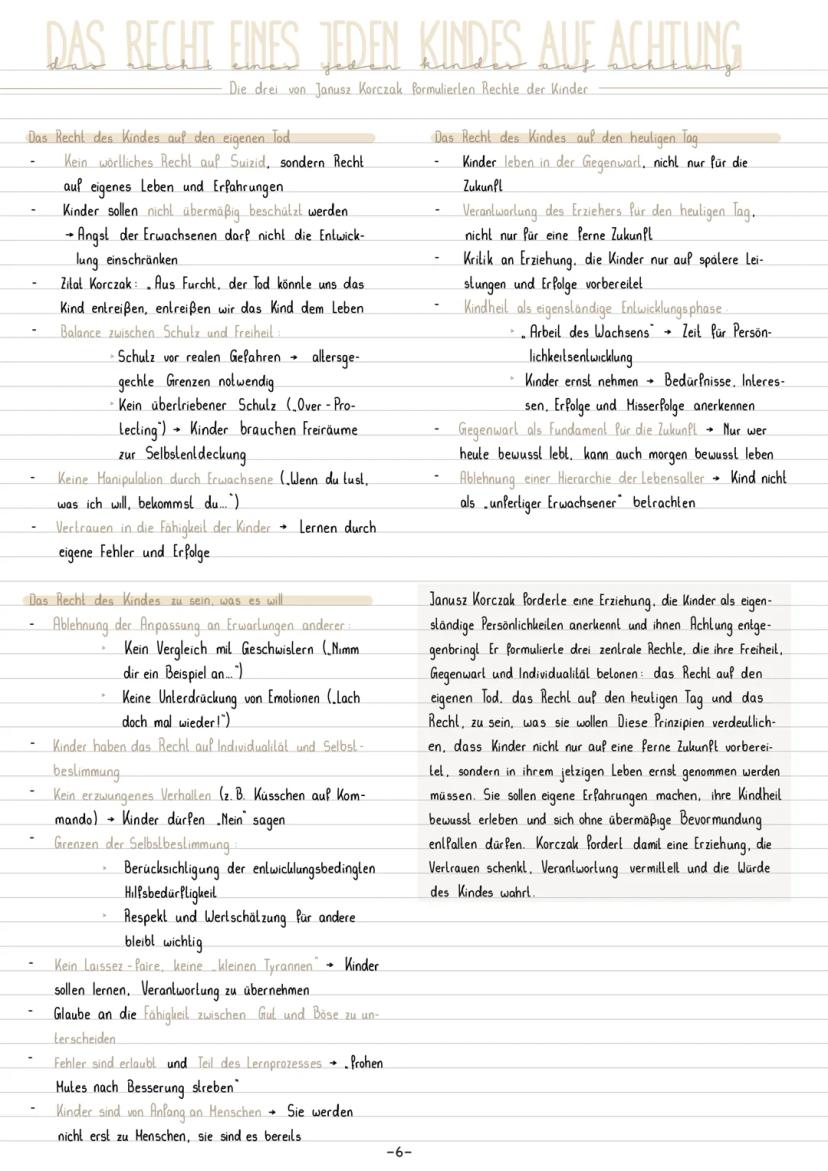 DAS RECHT EINES JEDEN KINDES AUF ACHTUNG
das recht eines jeden kindes auf achtung
Die drei von Janusz Korczak formulierten Rechte der Kinder
Das Recht des Kindes auf den eigenen Tod
- Kein wörtliches Recht auf Suizid, sondern Recht
auf eigenes Leben und Erfahrungen
- Kinder sollen nicht übermäßig beschützt werden
→ Angst der Erwachsenen darf nicht die Entwick-
lung einschränken
- Zitat Korczak: „Aus Furcht, der Tod könnte uns das
Kind entreißen, entreißen wir das Kind dem Leben
- Balance zwischen Schutz und Freiheit:
▹ Schutz vor realen Gefahren → altersge-
gechte Grenzen notwendig
▹ Kein übertriebener Schutz („Over-Pro-
tecting“) → Kinder brauchen Freiräume
zur Selbstentdeckung
- Keine Manipulation durch Erwachsene („Wenn du tust,
was ich will, bekommst du...“)
- Vertrauen in die Fähigkeit der Kinder → Lernen durch
eigene Fehler und Erfolge
Das Recht des Kindes auf den heutigen Tag
- Kinder leben in der Gegenwart, nicht nur für die
Zukunft
- Verantwortung des Erziehers für den heutigen Tag,
nicht nur für eine ferne Zukunft
- Kritik an Erziehung, die Kinder nur auf spätere Lei-
stungen und Erfolge vorbereitet
- Kindheit als eigenständige Entwicklungsphase:
▹ „Arbeit des Wachsens“ → Zeit für Persön-
lichkeitsentwicklung
▹ Kinder ernst nehmen → Bedürfnisse, Interes-
sen, Erfolge und Misserfolge anerkennen
- Gegenwart als Fundament für die Zukunft → Nur wer
heute bewusst lebt, kann auch morgen bewusst leben
- Ablehnung einer Hierarchie der Lebensalter → Kind nicht
als „unfertiger Erwachsener“ betrachten
Das Recht des Kindes zu sein, was es will
- Ablehnung der Anpassung an Erwartungen anderer:
▹ Kein Vergleich mit Geschwistern („Nimm
dir ein Beispiel an...“)
▹ Keine Unterdrückung von Emotionen („Lach
doch mal wieder!“)
- Kinder haben das Recht auf Individualität und Selbst-
bestimmung
- Kein erzwungenes Verhalten (z.B. Küsschen auf Kom-
mando) → Kinder dürfen „Nein“ sagen
- Grenzen der Selbstbestimmung:
▹ Berücksichtigung der entwicklungsbedingten
Hilfsbedürftigkeit
▹ Respekt und Wertschätzung für andere
bleibt wichtig
- Kein Laissez-faire, keine „kleinen Tyrannen“ → Kinder
sollen lernen, Verantwortung zu übernehmen
- Glaube an die Fähigkeit zwischen Gut und Böse zu un-
terscheiden
- Fehler sind erlaubt und Teil des Lernprozesses → „frohen
Mutes nach Besserung streben“
- Kinder sind von Anfang an Menschen → Sie werden
nicht erst zu Menschen, sie sind es bereits
Janusz Korczak forderte eine Erziehung, die Kinder als eigen-
ständige Persönlichkeiten anerkennt und ihnen Achtung entge-
genbringt. Er formulierte drei zentrale Rechte, die ihre Freiheit,
Gegenwart und Individualität betonen: das Recht auf den
eigenen Tod, das Recht auf den heutigen Tag und das
Recht, zu sein, was sie wollen. Diese Prinzipien verdeutlich-
en, dass Kinder nicht nur auf eine ferne Zukunft vorberei-
tet, sondern in ihrem jetzigen Leben ernst genommen werden
müssen. Sie sollen eigene Erfahrungen machen, ihre Kindheit
bewusst erleben und sich ohne übermäßige Bevormundung
entfalten dürfen. Korczak fordert damit eine Erziehung, die
Vertrauen schenkt, Verantwortung vermittelt und die Würde
des Kindes wahrt.
-6-